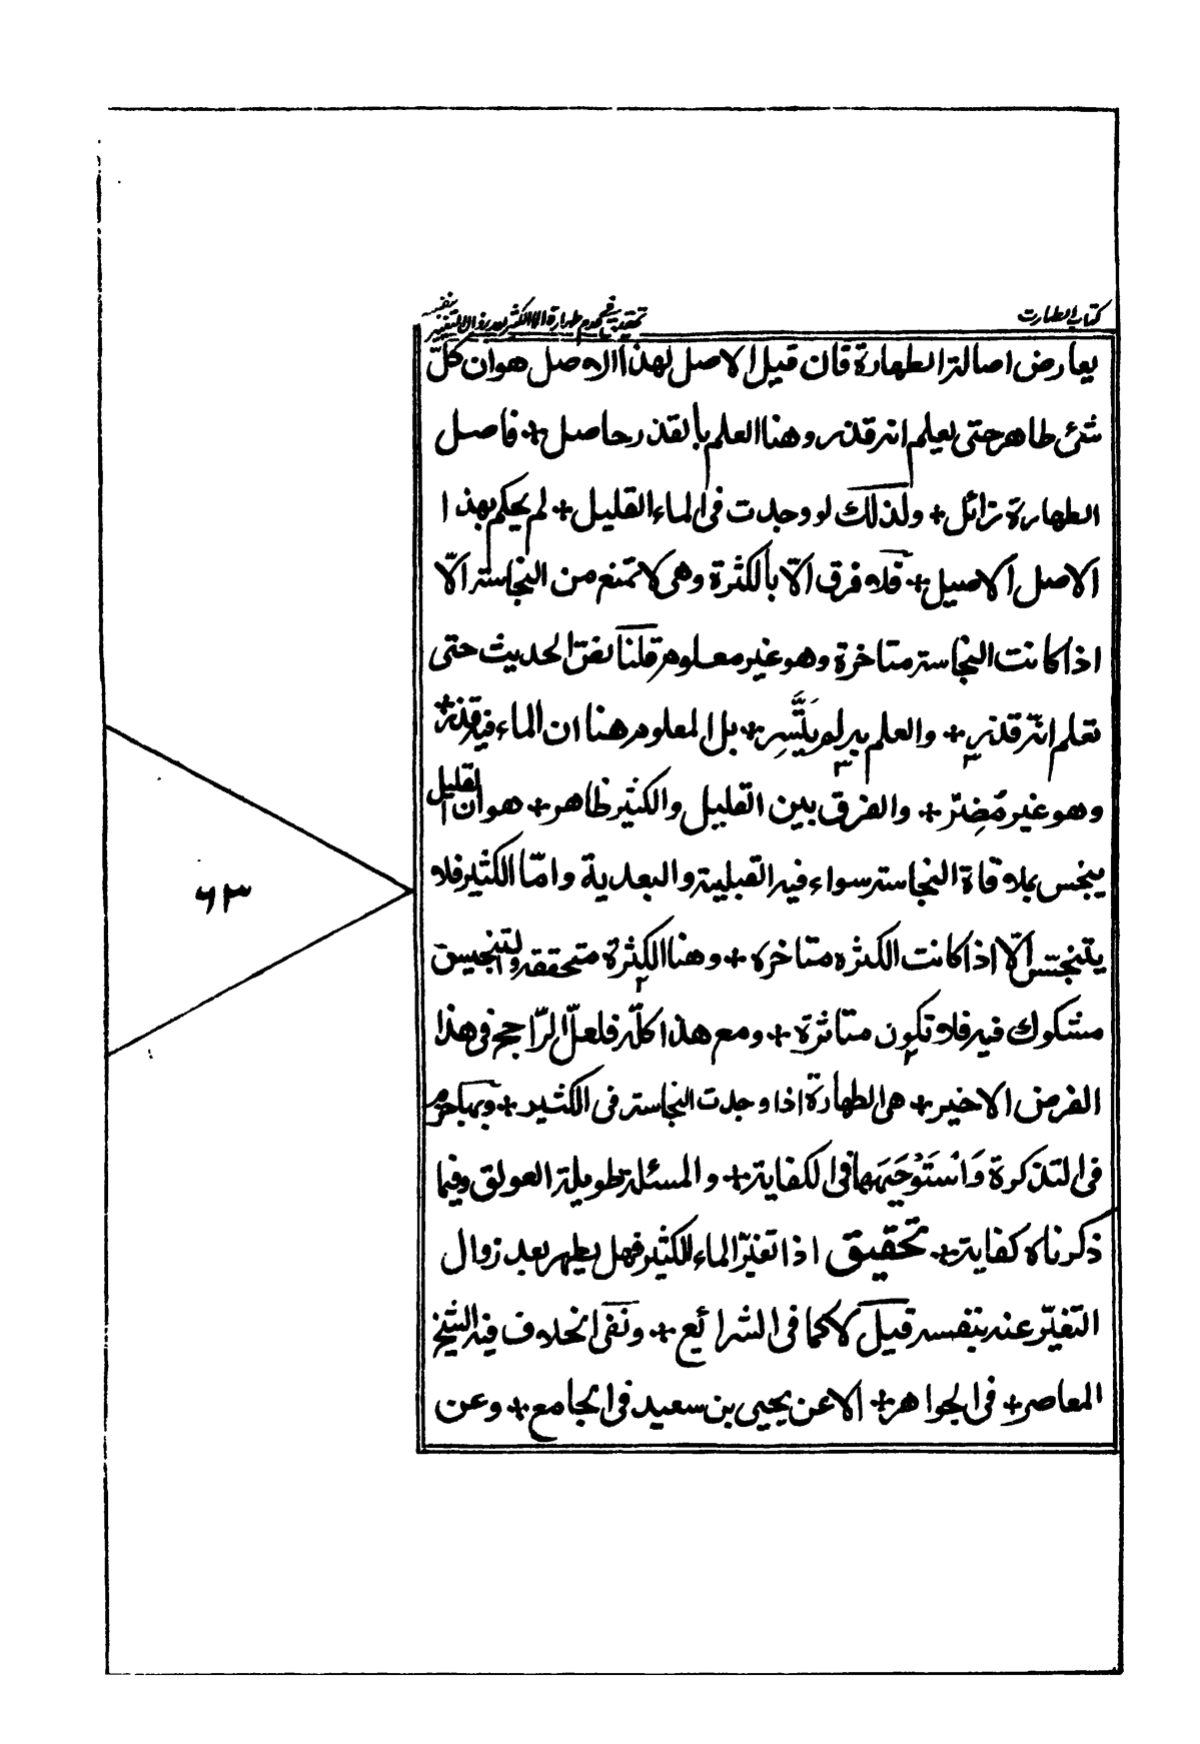 كتاب الطهارت
تحقيق في عدم طهارة الماء الكثير بعد زوال التغيير بنفسه
يعارض اصالة الطهارة فان قيل الاصل لهذا الاصل هو ان كلّ
شئ طاهر حتى يعلم انه قذر وهنا العلم بالقذر حاصل + فاصل
الطهارة زائل + ولذلك لو وجدت فى الماء القليل + لم يحكم بهذا
الاصل الاصيل + فلا فرق الّا بالكثرة وهى لا تمنع من النجاسة الّا
اذا كانت النجاسة متاخرة وهو غير معلوم قلنا نفس الحديث حتى
تعلم انّه قذر + والعلم به لم يتَّسِر + بل المعلوم هنا ان الماء فيه قذر +
وهو غير مُضِرّ + والفرق بين القليل والكثير ظاهر + هو ان القليل
ينجس بملاقاة النجاسة سواء فيه القبلية والبعدية وامّا الكثير فلا
يتنجس الّا اذا كانت الكثره متاخره + وهنا الكثرة متحققه والتنجيس
مشكوك فيه فلا تكون متاثرة + ومع هذا كلّه فلعلّ الرّاجح فى هذا
الفرض الاخير + هى الطهارة اذا وجدت النجاسة فى الكثير + وبها جزم
فى التذكرة وَاسْتَوْجَهَهَا فى الكفاية + والمسئلة طويلة العولق وفيما
ذكرناه كفاية + تحقيق اذا تغيّر الماء الكثير فهل يطهر بعد زوال
التغيّر عنه بنفسه قيل لا كما فى الشرائع + ونفى الخلاف فيه الشيخ
المعاصر + فى الجواهر + الا عن يحيى بن سعيد فى الجامع + وعن
٦٣